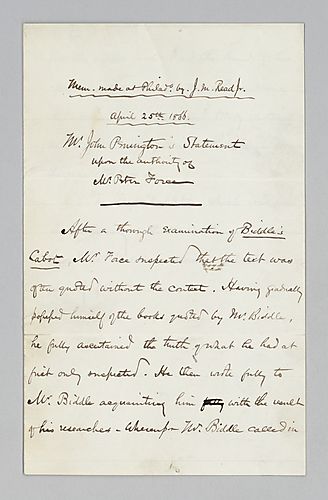 Mem. made at Philada. by J. M. Read Jr.
April 25th 1866.
Mr. John Penington's Statement
upon the authority of
Mr. Peter Force
After a thorough examination of Biddle's
Cabot, Mr. Force suspected that the text was
often quoted without the context. Having gradually
possessed himself of the books quoted by Mr. Biddle,
he fully ascertained the truth of what he had at
first only suspected. He then wrote fully to
Mr. Biddle acquainting him with the result
of his researches - Whereupon Mr. Biddle called in